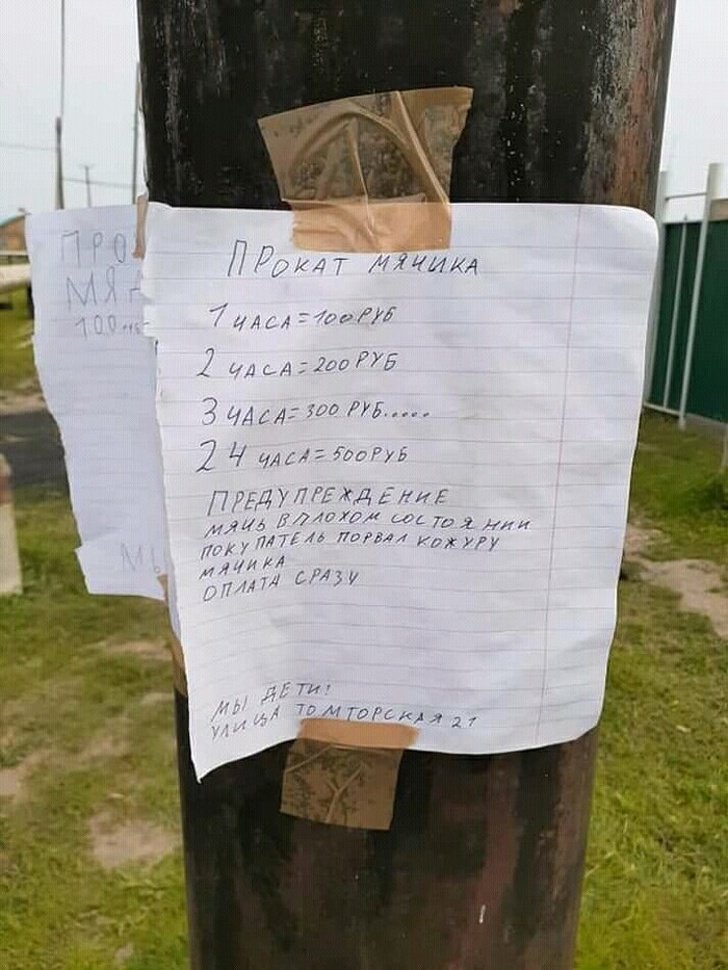 ПРОКАТ МЯЧИКА
1 ЧАСА=100РУБ
2 ЧАСА=200РУБ
3 ЧАСА=300 РУБ.....
24 ЧАСА=500РУБ
ПРЕДУПРЕЖДЕНИЕ
МЯЧЬ В ПЛОХОМ СОСТОЯНИИ
ПОКУПАТЕЛЬ ПОРВАЛ КОЖУРУ
МЯЧИКА
ОПЛАТА СРАЗУ
МЫ ДЕТИ!
УЛИЦА ТОМТОРСКАЯ 21
ПРО
МЯЧ
МЫ